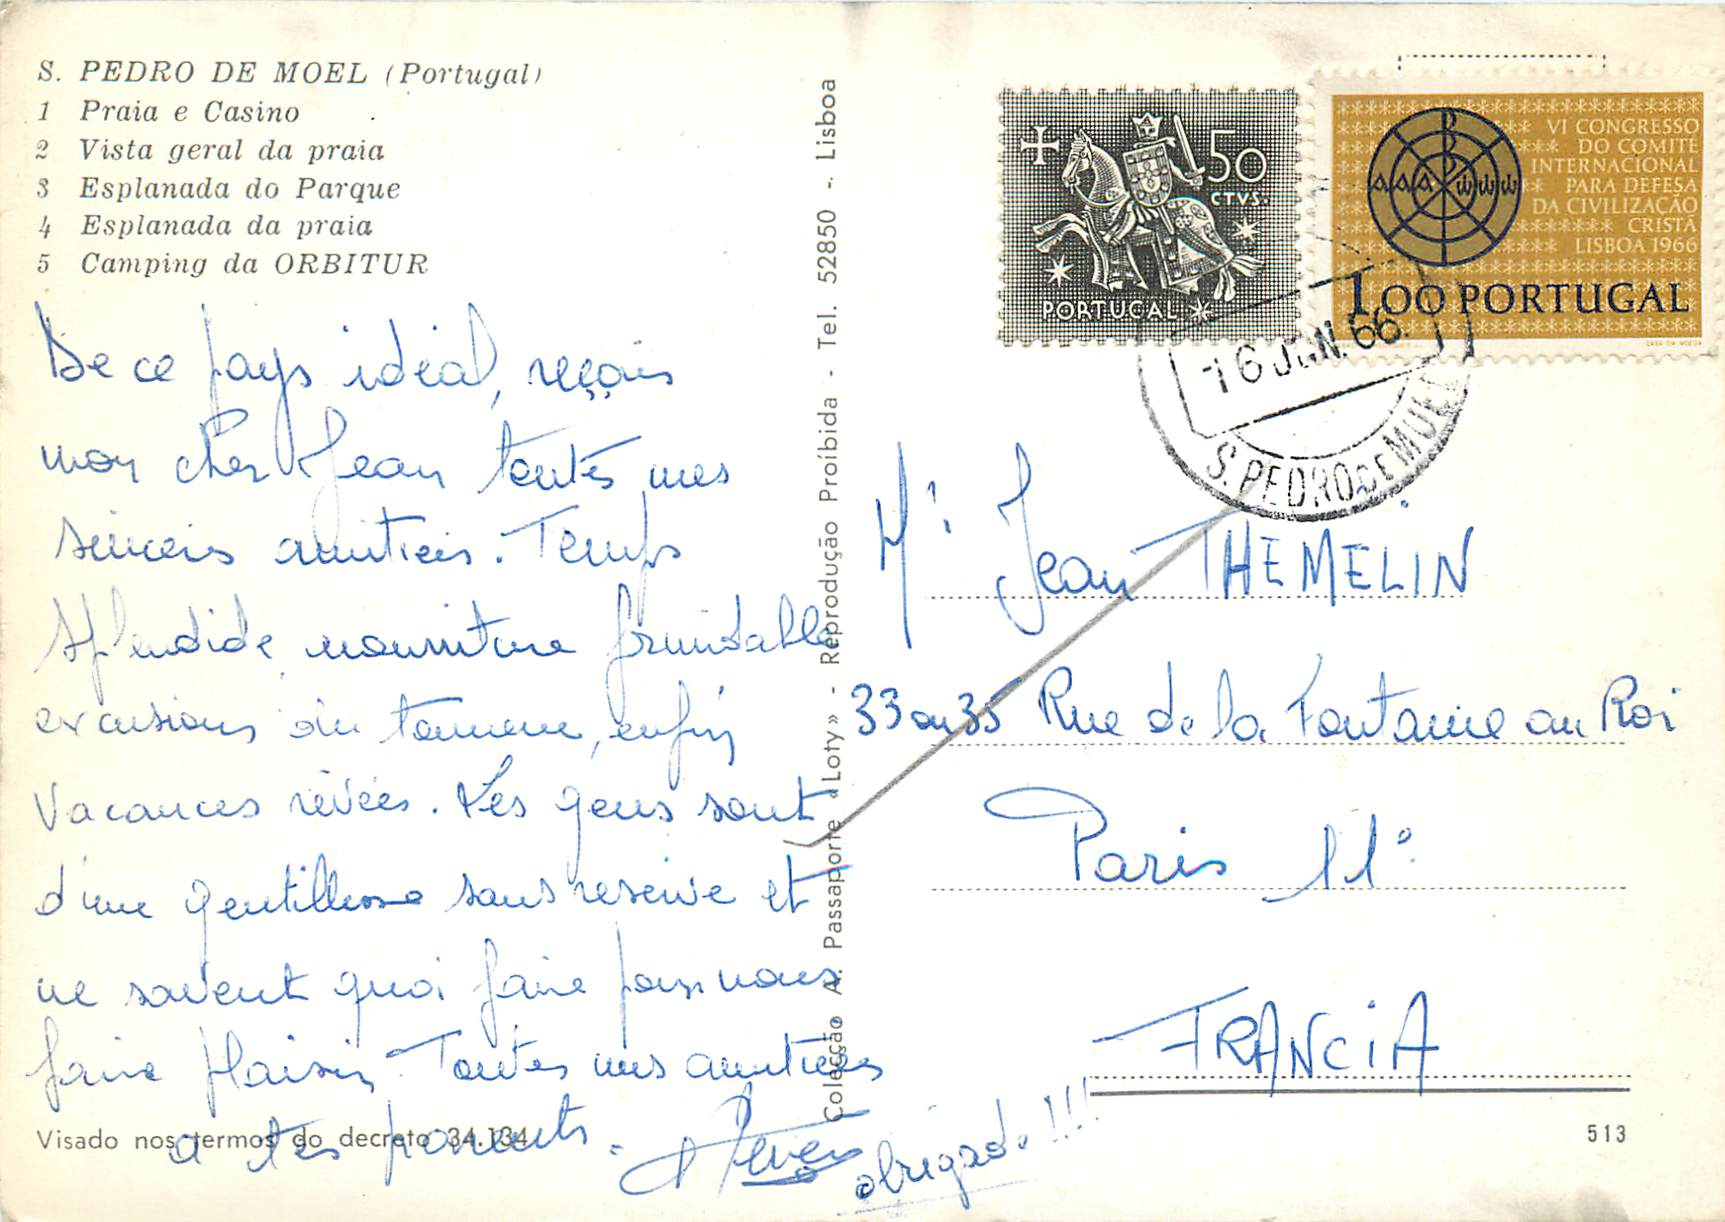 S. PEDRO DE MOEL (Portugal)
1 Praia e Casino
2 Vista geral da praia
3 Esplanada do Parque
4 Esplanada da praia
5 Camping da ORBITUR
De ce pays idéal, reçois
mon cher Jean toutes mes
sincères amitiés. Temps
splendide, nourriture formidable
excursions du tonnerre, enfin
vacances rêvées. Les gens sont
d'une gentillesse sans réserve et
ne savent quoi faire pour nous
faire plaisir. Toutes mes amitiés
a tes parents.
obrigado !!!
Visado nos termos do decreto 34.134
Colecção A. Passaporte «Loty» - Reprodução Proíbida - Tel. 52850 - Lisboa
50
CTVS.
PORTUGAL
VI CONGRESSO
DO COMITÉ
INTERNACIONAL
PARA DEFESA
DA CIVILIZAÇÃO
CRISTÃ
LISBOA 1966
1.00 PORTUGAL
CASA DA MOEDA
16 JUN. 66.
S. PEDRO DE MUEL
Mr Jean THEMELIN
33 ou 35 Rue de la Fontaine au Roi
Paris 11°
FRANCIA
513